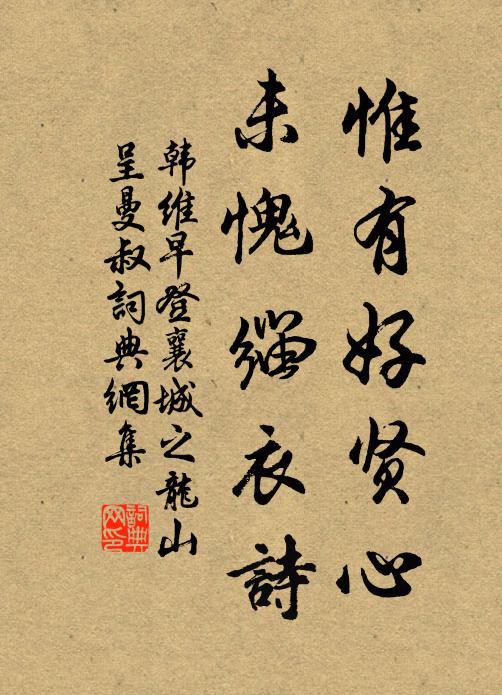 惟有好贤心
未愧缁衣詩
韩维早登襄城之龍山
呈曼叔詞典網集
詞典
网印